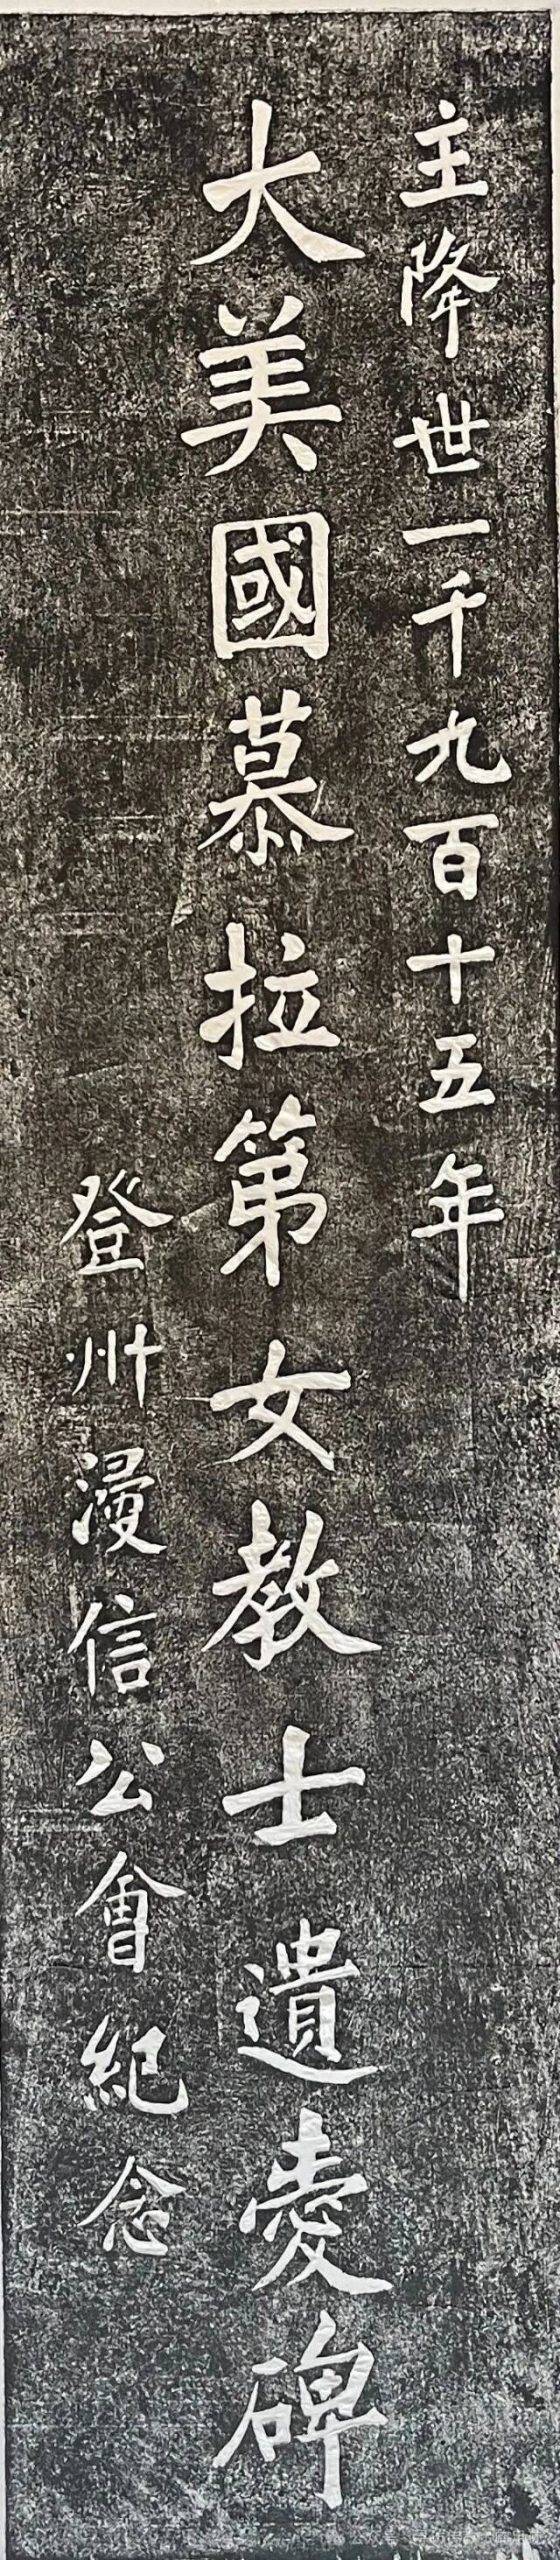 主降世一千九百十五年
大美國慕拉第女教士遺愛碑
登州浸信公會紀念